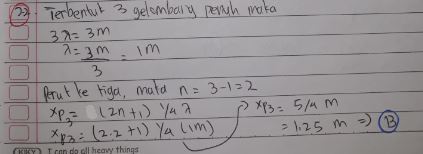 22. Terbentuk 3 gelombang penuh maka
3λ = 3m
λ = 3m/3 = 1m
Perut ke tiga, maka n = 3-1 = 2
xp₃ = (2n+1) 1/4 λ
xp₃ = (2.2+1) 1/4 (1m) → xp₃ = 5/4 m
= 1.25 m => B
I can do all heavy things